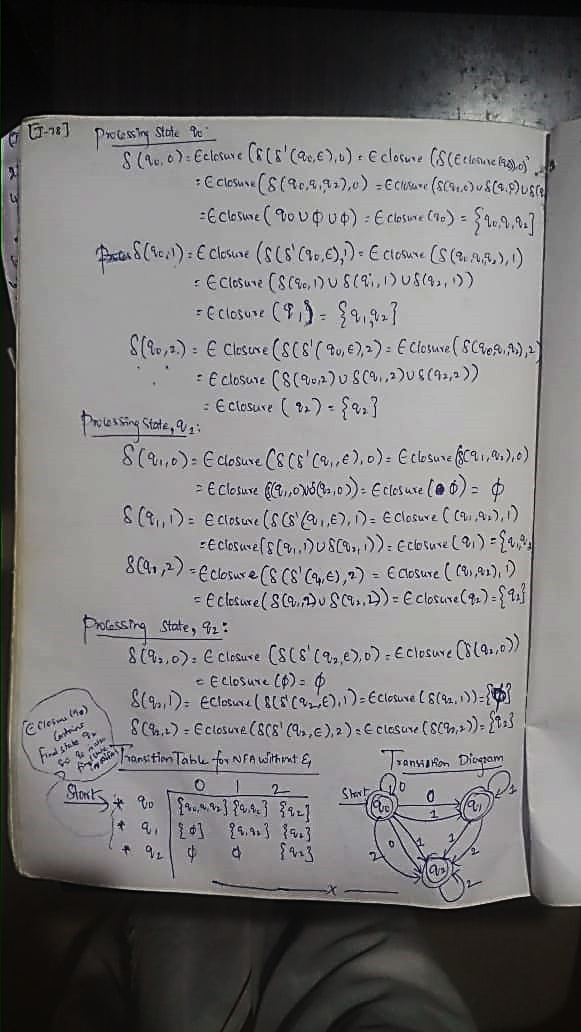 [I-78] Processing State q₀:
δ(q₀,0) = Єclosure(δ(δ'(q₀,Є),0) = Єclosure(δ(Єclosure(q₀),0)
= Єclosure(δ(q₀,q₁,q₂),0) = Єclosure(δ(q₀,0)∪δ(q₁,0)∪δ(q₂
= Єclosure(q₀∪ϕ∪ϕ) = Єclosure(q₀) = {q₀,q₁,q₂}
δ(q₀,1) = Єclosure(δ(δ'(q₀,Є),1) = Єclosure(δ(q₀,q₁,q₂),1)
= Єclosure(δ(q₀,1)∪δ(q₁,1)∪δ(q₂,1))
= Єclosure(q₁} = {q₁,q₂}
δ(q₀,2) = Є Closure(δ(δ'(q₀,Є),2) = Єclosure(δ(q₀q₁,q₂),2
= Єclosure(δ(q₀,2)∪δ(q₁,2)∪δ(q₂,2))
= Єclosure(q₂) = {q₂}
Processing State, q₁:
δ(q₁,0) = Єclosure(δ(δ'(q₁,Є),0) = Єclosure(δ(q₁,q₂),0)
= Єclosure(δ(q₁,0)∪δ(q₂,0)) = Єclosure(ϕ) = ϕ
δ(q₁,1) = Єclosure(δ(δ'(q₁,Є),1) = Єclosure((q₁,q₂),1)
= Єclosure(δ(q₁,1)∪δ(q₂,1)) = Єclosure(q₁) = {q₁,q₂
δ(q₁,2) = Єclosure(δ(δ'(q₁,Є),2) = Єclosure((q₁,q₂),1)
= Єclosure(δ(q₁,2)∪δ(q₂,2)) = Єclosure(q₂) = {q₂}
Processing State, q₂:
δ(q₂,0) = Єclosure(δ(δ'(q₂,Є),0) = Єclosure(δ(q₂,0))
= Єclosure(ϕ) = ϕ
δ(q₂,1) = Єclosure(δ(δ'(q₂,Є),1) = Єclosure(δ(q₂,1)) = {ϕ}
δ(q₂,2) = Єclosure(δ(δ'(q₂,Є),2) = Єclosure(δ(q₂,2)) = {q₂}
Єclosure(q₀)
Contains
final state q₂
so q₀ is also
final state
Transition Table for NFA without Є,
0 1 2
Start → * q₀ {q₀,q₁,q₂} {q₁,q₂} {q₂}
* q₁ {ϕ} {q₁,q₂} {q₂}
* q₂ ϕ ϕ {q₂}
Transition Diagram
0
Start q₀ 0 q₁ 1
1
2 0 1 1 2
q₂ 2
x